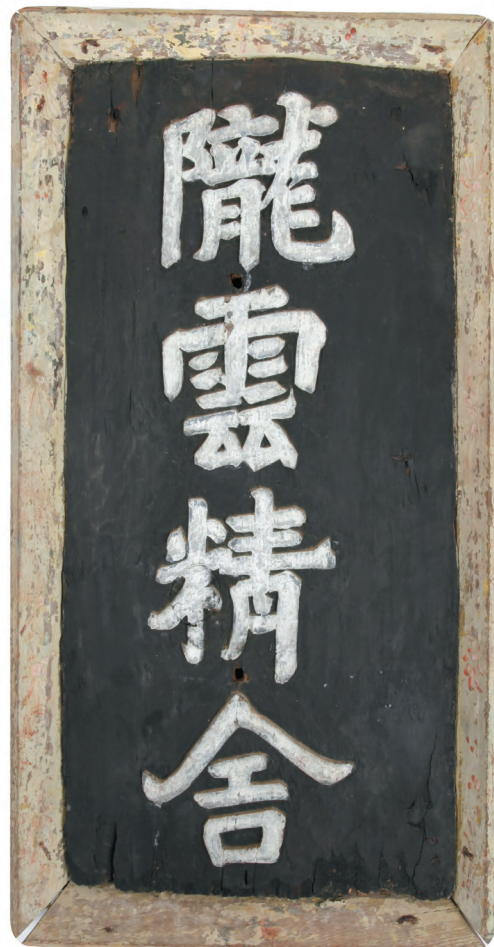 隴雲精舍